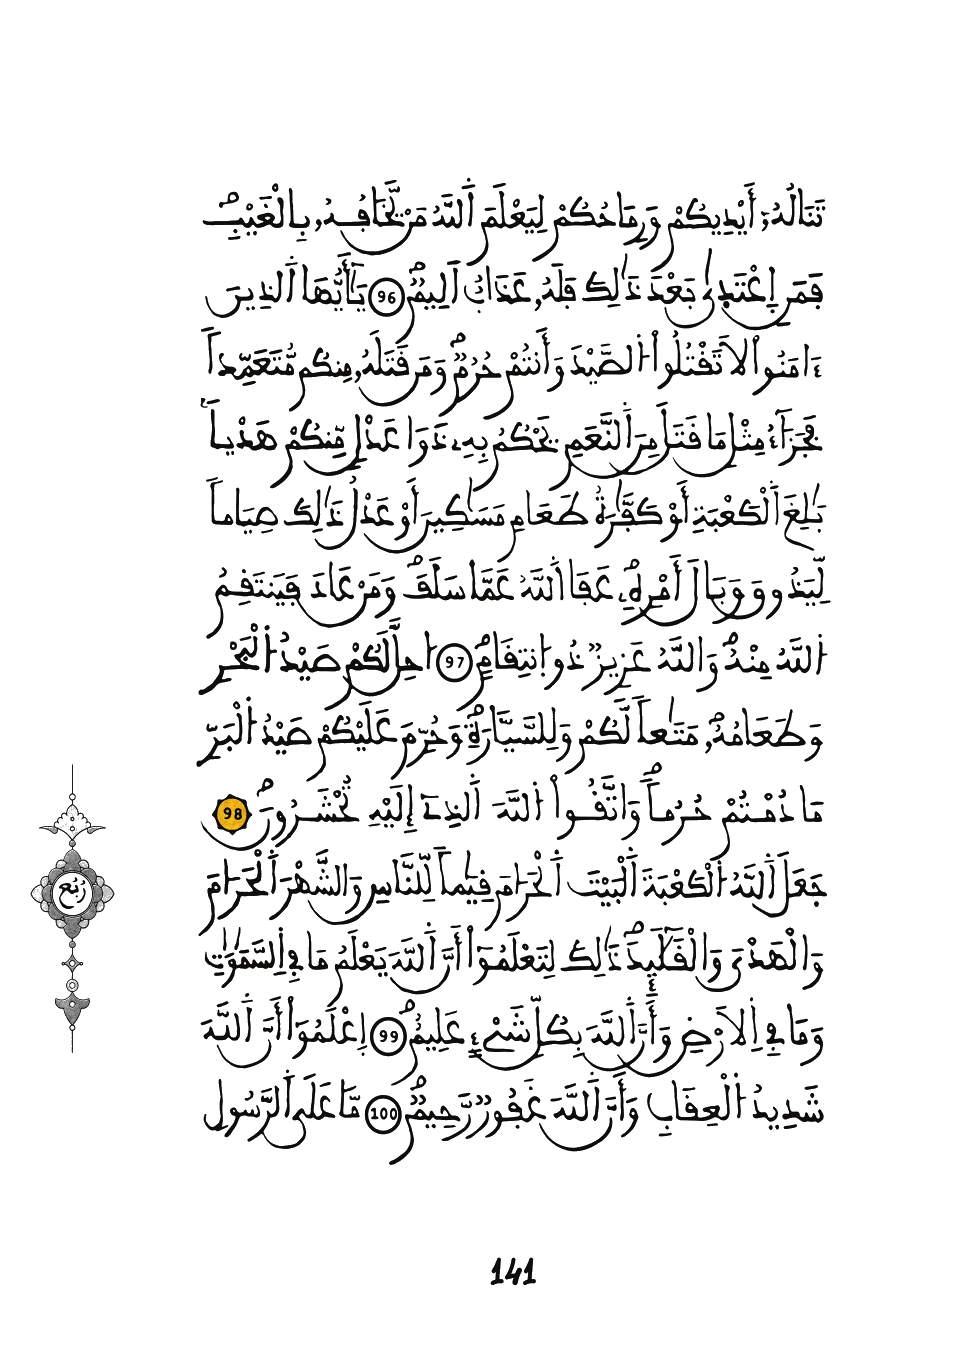 تَنَالُهُۥٓ أَيْدِيكُمْ وَرِمَاحُكُمْ لِيَعْلَمَ اَ۬للَّهُ مَنْ يَّخَافُهُۥ بِالْغَيْبِۖ
فَمَنِ اِ۪عْتَدۭيٰ بَعْدَ ذَٰلِكَ فَلَهُۥ عَذَابٌ أَلِيمٌۖ 96 يَٰٓأَيُّهَا اَ۬لذِينَ
ءَامَنُواْ لَا تَقْتُلُواْ اُ۬لصَّيْدَ وَأَنتُمْ حُرُمٌۖ وَمَن قَتَلَهُۥ مِنكُم مُّتَعَمِّداٗ
فَجَزَآءُ مِثْلِ مَا قَتَلَ مِنَ اَ۬لنَّعَمِ يَحْكُمُ بِهِۦ ذَوَا عَدْلٖ مِّنكُمْ هَدْياَۢ
بَٰلِغَ اَ۬لْكَعْبَةِ أَوْ كَفَّٰرَةُ طَعَامِ مَسَٰكِينَ أَوْ عَدْلُ ذَٰلِكَ صِيَاماٗ
لِّيَذُوقَ وَبَالَ أَمْرِهِۦۖ عَفَا اَ۬للَّهُ عَمَّا سَلَفَۖ وَمَنْ عَادَ فَيَنتَقِمُ
اُ۬للَّهُ مِنْهُۖ وَاللَّهُ عَزِيزٞ ذُو اُ۪نتِقَامٍۖ 97 ا۟حِلَّ لَكُمْ صَيْدُ اُ۬لْبَحْرِ
وَطَعَامُهُۥ مَتَٰعاٗ لَّكُمْ وَلِلسَّيَّارَةِۖ وَحُرِّمَ عَلَيْكُمْ صَيْدُ اُ۬لْبَرِّ
مَا دُمْتُمْ حُرُماٗۖ وَاتَّقُواْ اُ۬للَّهَ اَ۬لذِےٓ إِلَيْهِ تُحْشَرُونَۖ 98
جَعَلَ اَ۬للَّهُ اُ۬لْكَعْبَةَ اَ۬لْبَيْتَ اَ۬لْحَرَامَ قِيَٰماٗ لِّلنَّاسِ وَالشَّهْرَ اَ۬لْحَرَامَ
وَالْهَدْيَ وَالْقَلَٰٓئِدَۖ ذَٰلِكَ لِتَعْلَمُوٓاْ أَنَّ اَ۬للَّهَ يَعْلَمُ مَا فِے اِ۬لسَّمَٰوَٰتِ
وَمَا فِے اِ۬لَارْضِ وَأَنَّ اَ۬للَّهَ بِكُلِّ شَےْءٍ عَلِيمٌۖ 99 اِ۪عْلَمُوٓاْ أَنَّ اَ۬للَّهَ
شَدِيدُ اُ۬لْعِقَابِ وَأَنَّ اَ۬للَّهَ غَفُورٞ رَّحِيمٌۖ 100 مَّا عَلَي اَ۬لرَّسُولِ
ربع
141